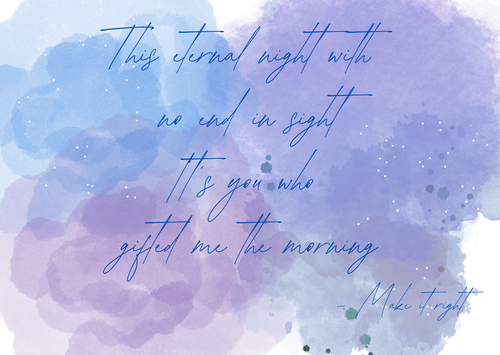 This eternal night with
no end in sight
It's you who
gifted me the morning
- Make it right